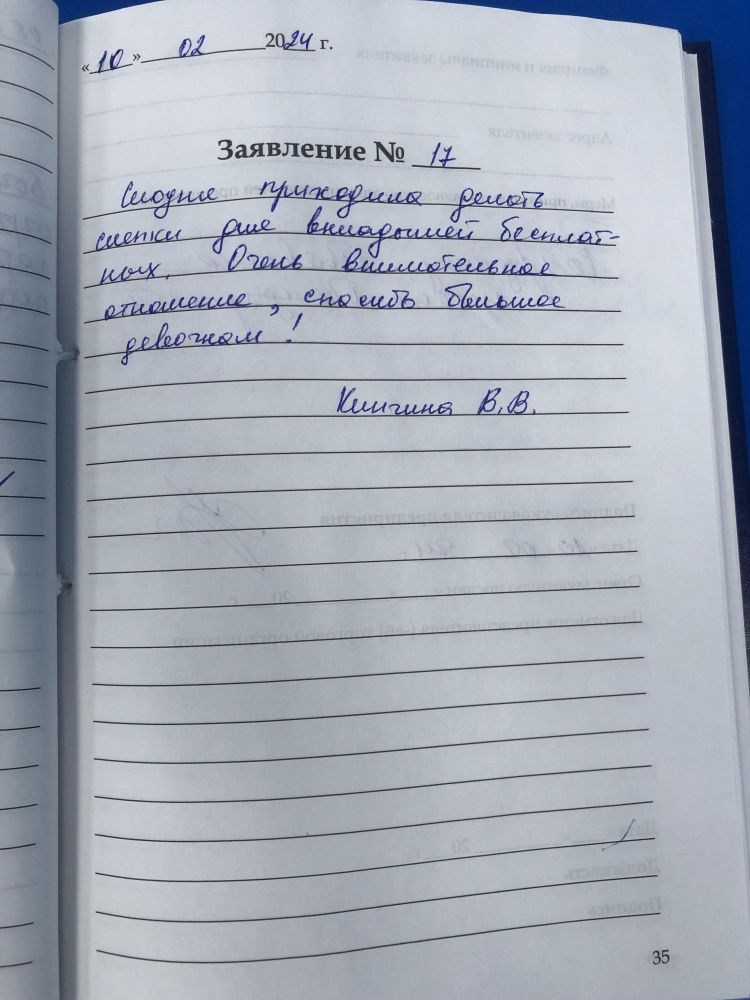 «10» 02 2024 г.
Заявление № 17
Сегодня приходила делать
слепки для вкладышей бесплат-
ных. Очень внимательное
отношение, спасибо большое
девочкам!
В.В.
35